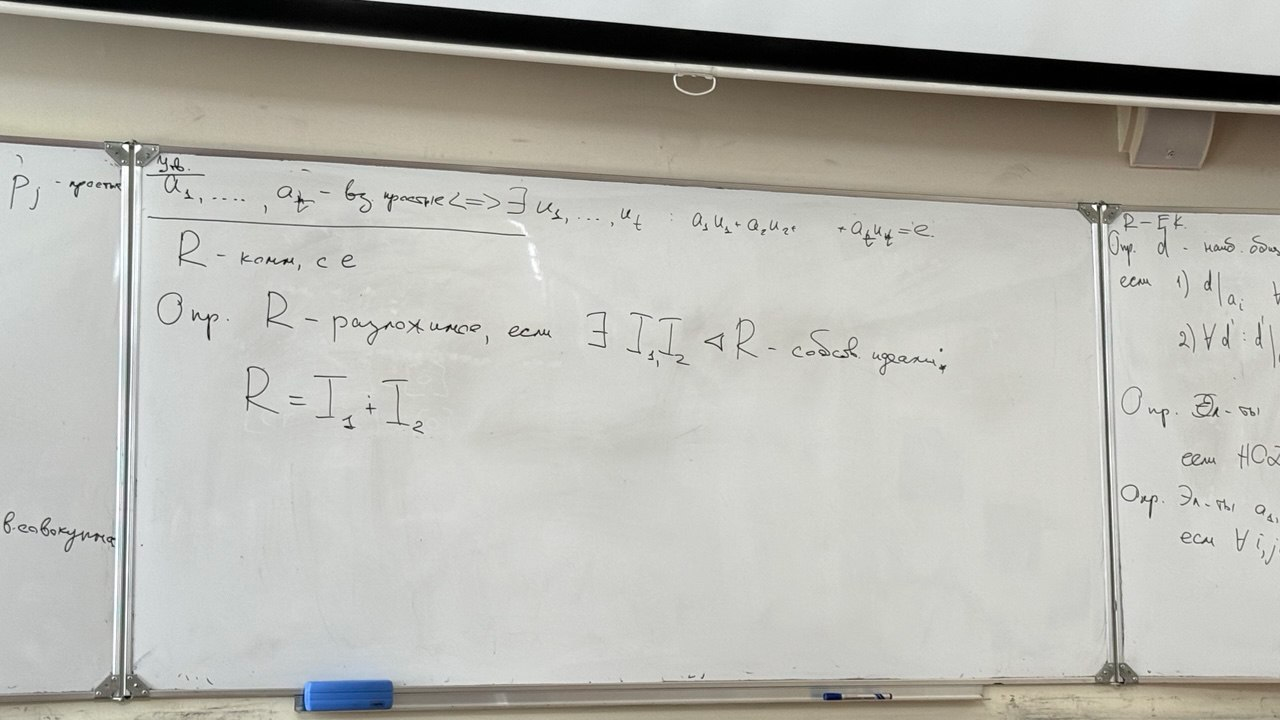 Pj - простые
в совокупно
Утв.
a₁, ...., aₜ - вз простые <=> ∃ u₁, ..., uₜ : a₁u₁ + a₂u₂+ +aₜuₜ = e.
R - комм, с e
Опр. R - разложимое, если ∃ I₁, I₂ ⊲ R - собств. идеалы:
R = I₁ ∔ I₂
R - Е.К.
Опр. d - наиб. общ
если 1) d | aᵢ ∀
2) ∀ d' : d' |
Опр. Эл-ты
если НОД
Опр. Эл-ты a₁,
если ∀ i, j